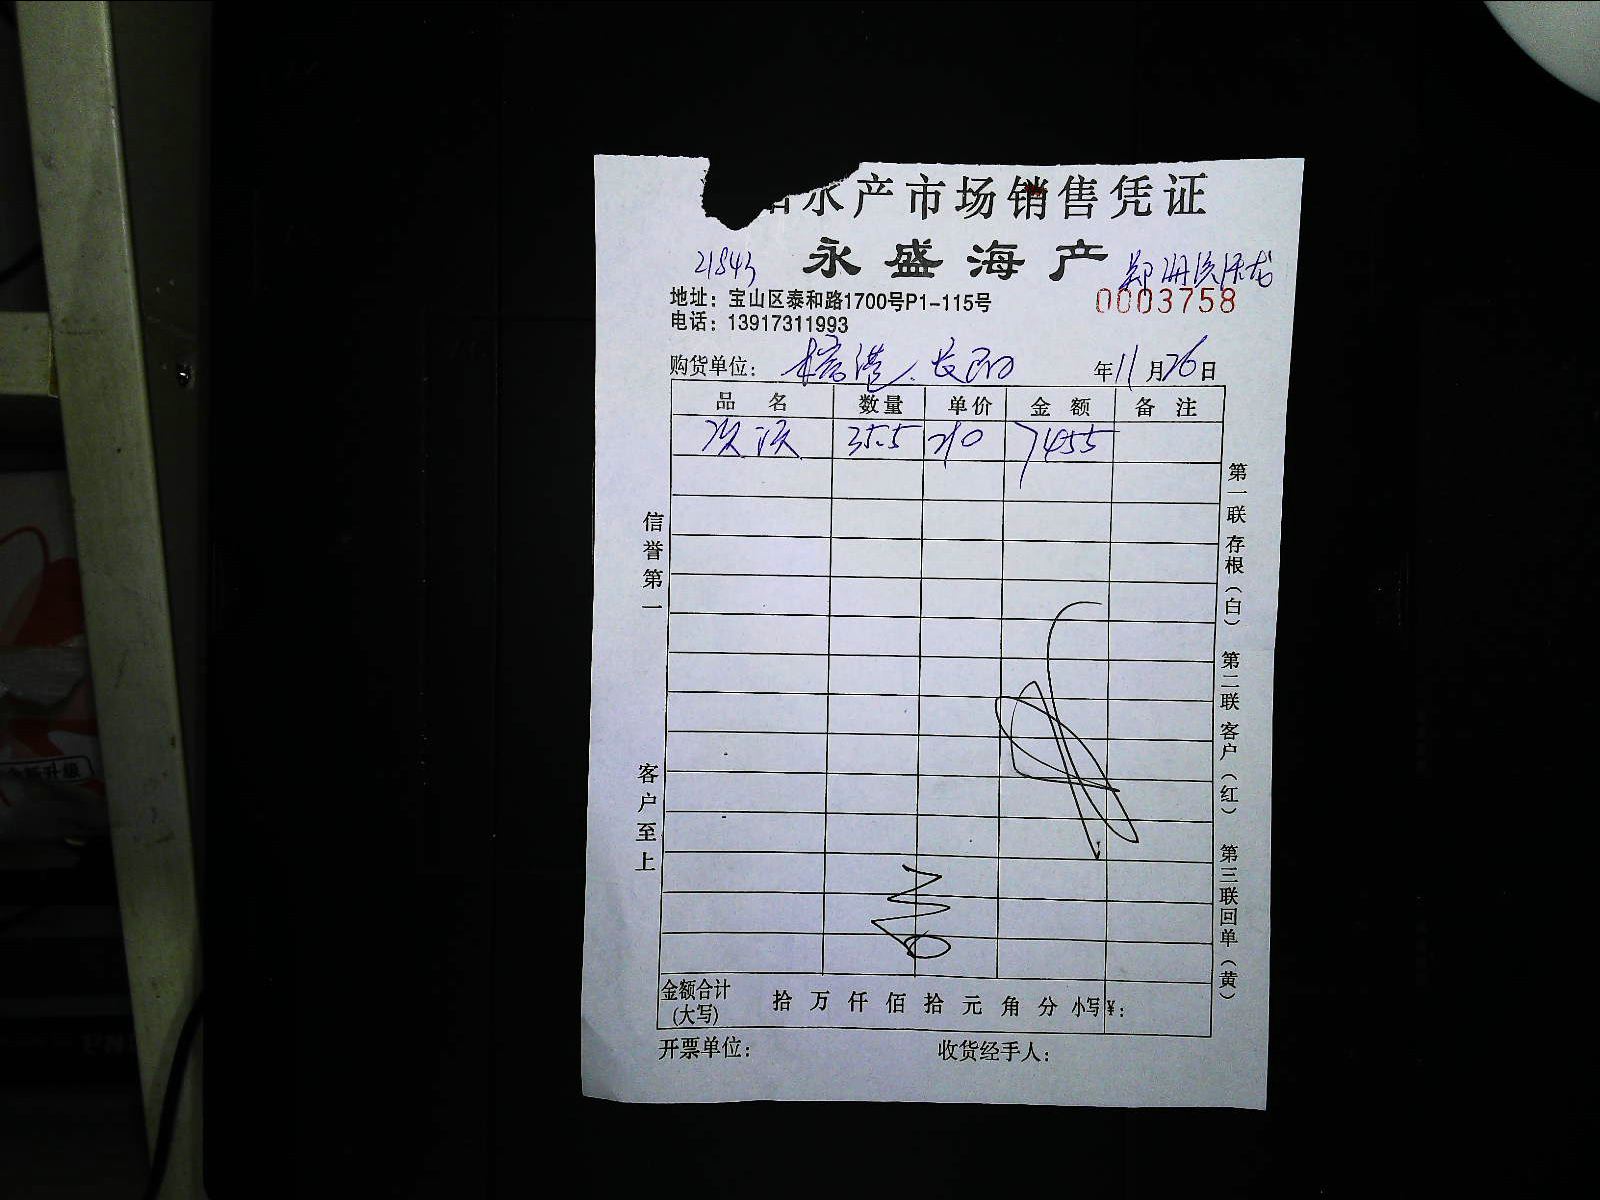 水产市场销售凭证
21843
永盛海产
地址：宝山区泰和路1700号P1-115号
0003758
电话：13917311993
购货单位：
年11月26日
品名 数量 单价 金额 备注
35.5 210 7455
信誉第一
客户至上
第一联存根（白） 第二联客户（红） 第三联回单（黄）
金额合计(大写) 拾万仟佰拾元角分 小写￥：
开票单位： 收货经手人：
全新升级